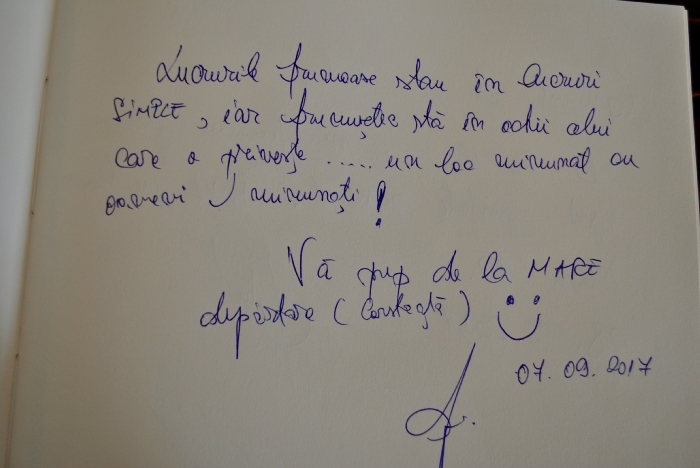 Lucrurile frumoase stau în lucruri
SIMPLE, iar frumusețea stă în ochii celui
care o privește ..... un loc minunat cu
oameni minunați!
Vă pup de la MARE
depărtare (Constanța)
07.09.2017